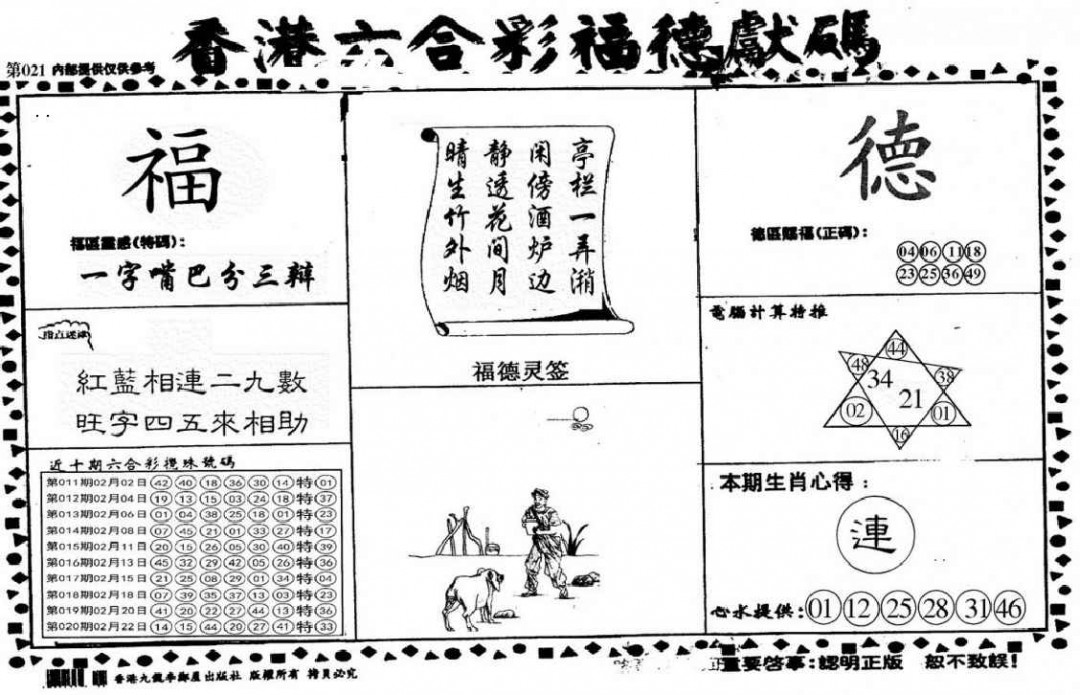 香港六合彩福德獻碼
第021 内部提供仅供参考
福
福區靈感(特碼):
一字嘴巴分三辩
紅藍相連二九數
旺字四五來相助
近十期六合彩攪珠號碼
第011期02月02日 42 40 18 36 30 14 特 01
第012期02月04日 19 13 15 03 24 18 特 37
第013期02月06日 01 04 38 25 18 01 特 23
第014期02月08日 07 45 21 01 33 27 特 17
第015期02月11日 20 15 26 05 30 40 特 39
第016期02月13日 45 32 29 42 05 26 特 36
第017期02月15日 21 25 08 29 01 34 特 04
第018期02月18日 07 39 35 37 13 03 特 23
第019期02月20日 41 20 22 27 44 13 特 36
第020期02月22日 14 15 44 20 27 41 特 33
亭栏一弄潲
闲傍酒炉边
静透花间月
晴生竹外烟
福德灵签
德
德區賜福(正碼):
04 06 11 18
23 25 36 49
電腦計算特推
44
48 38
34
21
02 01
16
本期生肖心得:
連
心水提供: 01 12 25 28 31 46
香港九龍李鄭屋出版社 版權所有 拷貝必究
重要啓事:認明正版 敬不致誤!